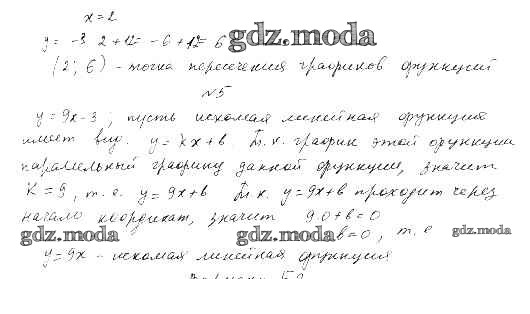 x = 2
y = -3 · 2 + 12 = -6 + 12 = 6
gdz.moda
(2; 6) - точка пересечения графиков функций
№5
y = 9x - 3; пусть искомая линейная функция
имеет вид. y = kx + b. Т. к. график этой функции
параллельный графику данной функции, значит
K = 9, т. е. y = 9x + b Т. к. y = 9x + b проходит через
начало координат, значит 9·0 + b = 0
gdz.moda gdz.moda b = 0, т. е gdz.moda
y = 9x - искомая линейная функция